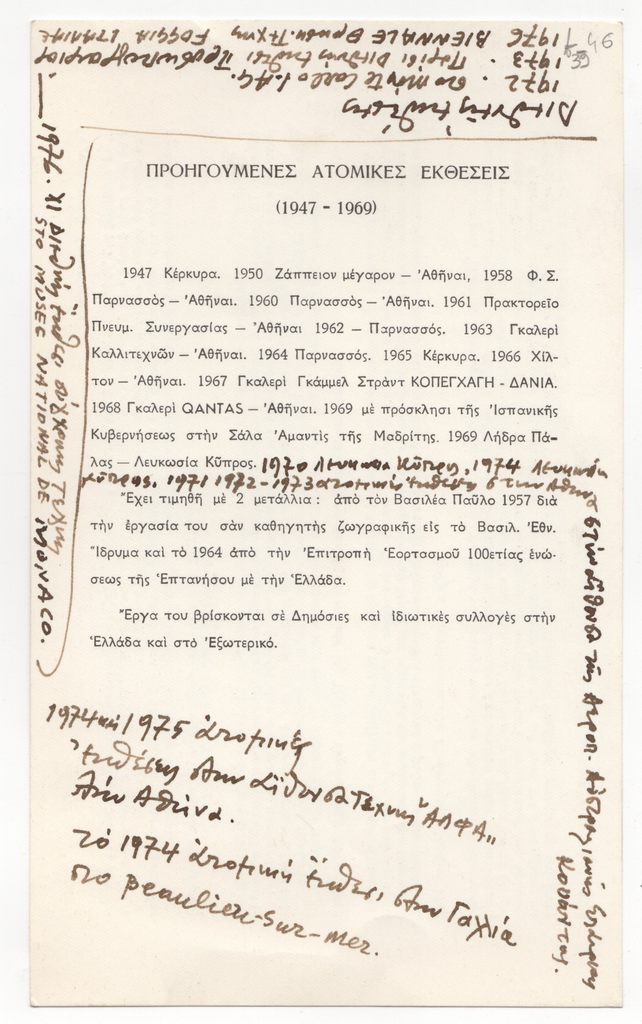 46
39
Διεθνείς ἐκθέσεις
1972 . στο Μόντε Carlo I.A.G.
1973 . Παρίσι Διεθνής ἔκθεσι Προσωπογραφίας
1976 BIENNALE Θρησκ. Τέχνης FOGGIA ΙΤΑΛΙΑΣ
— 1976. XI Διεθνής ἔκθεσι σύγχρονης τέχνης
ΣΤΟ MUSEE NATIONAL DE MONACO.
ΠΡΟΗΓΟΥΜΕΝΕΣ ΑΤΟΜΙΚΕΣ ΕΚΘΕΣΕΙΣ
(1947 - 1969)
1947 Κέρκυρα. 1950 Ζάππειον μέγαρον — Ἀθῆναι, 1958 Φ. Σ.
Παρνασσὸς — Ἀθῆναι. 1960 Παρνασσὸς — Ἀθῆναι. 1961 Πρακτορεῖο
Πνευμ. Συνεργασίας — Ἀθῆναι 1962 — Παρνασσός. 1963 Γκαλερὶ
Καλλιτεχνῶν — Ἀθῆναι. 1964 Παρνασσός. 1965 Κέρκυρα. 1966 Χίλ-
τον — Ἀθῆναι. 1967 Γκαλερὶ Γκάμμελ Στράντ ΚΟΠΕΓΧΑΓΗ - ΔΑΝΙΑ.
1968 Γκαλερὶ QANTAS — Ἀθῆναι. 1969 μὲ πρόσκλησι τῆς Ἱσπανικῆς
Κυβερνήσεως στὴν Σάλα Ἀμαντὶς τῆς Μαδρίτης. 1969 Λήδρα Πά-
λας — Λευκωσία Κύπρος. 1970 Λευκωσία Κύπρος, 1974 Λευκωσία
Κύπρος. 1971 1972 - 1973 ατομική ἔκθεση στην Αθήνα
στὴν αἴθουσα της Αεροπ. Αὐστραλιανῆς Εταιρίας
Κουάντας.
Ἔχει τιμηθῆ μὲ 2 μετάλλια : ἀπὸ τὸν Βασιλέα Παῦλο 1957 διὰ
τὴν ἐργασία του σὰν καθηγητὴς ζωγραφικῆς εἰς τὸ Βασιλ. Ἐθν.
Ἵδρυμα καὶ τὸ 1964 ἀπὸ τὴν Ἐπιτροπὴ Ἑορτασμοῦ 100ετίας ἑνώ-
σεως τῆς Ἑπτανήσου μὲ τὴν Ἑλλάδα.
Ἔργα του βρίσκονται σὲ Δημόσιες καὶ ἰδιωτικὲς συλλογὲς στὴν
Ἑλλάδα καὶ στὸ Ἐξωτερικό.
1974 και 1975 ἀτομικές
ἐκθέσεις στην αἴθουσα Τέχνης "ΑΛΦΑ„
στὴν Αθήνα.
τὸ 1974 ἀτομική ἔκθεσι στην Γαλλία
στο Beaulieu-sur-mer.